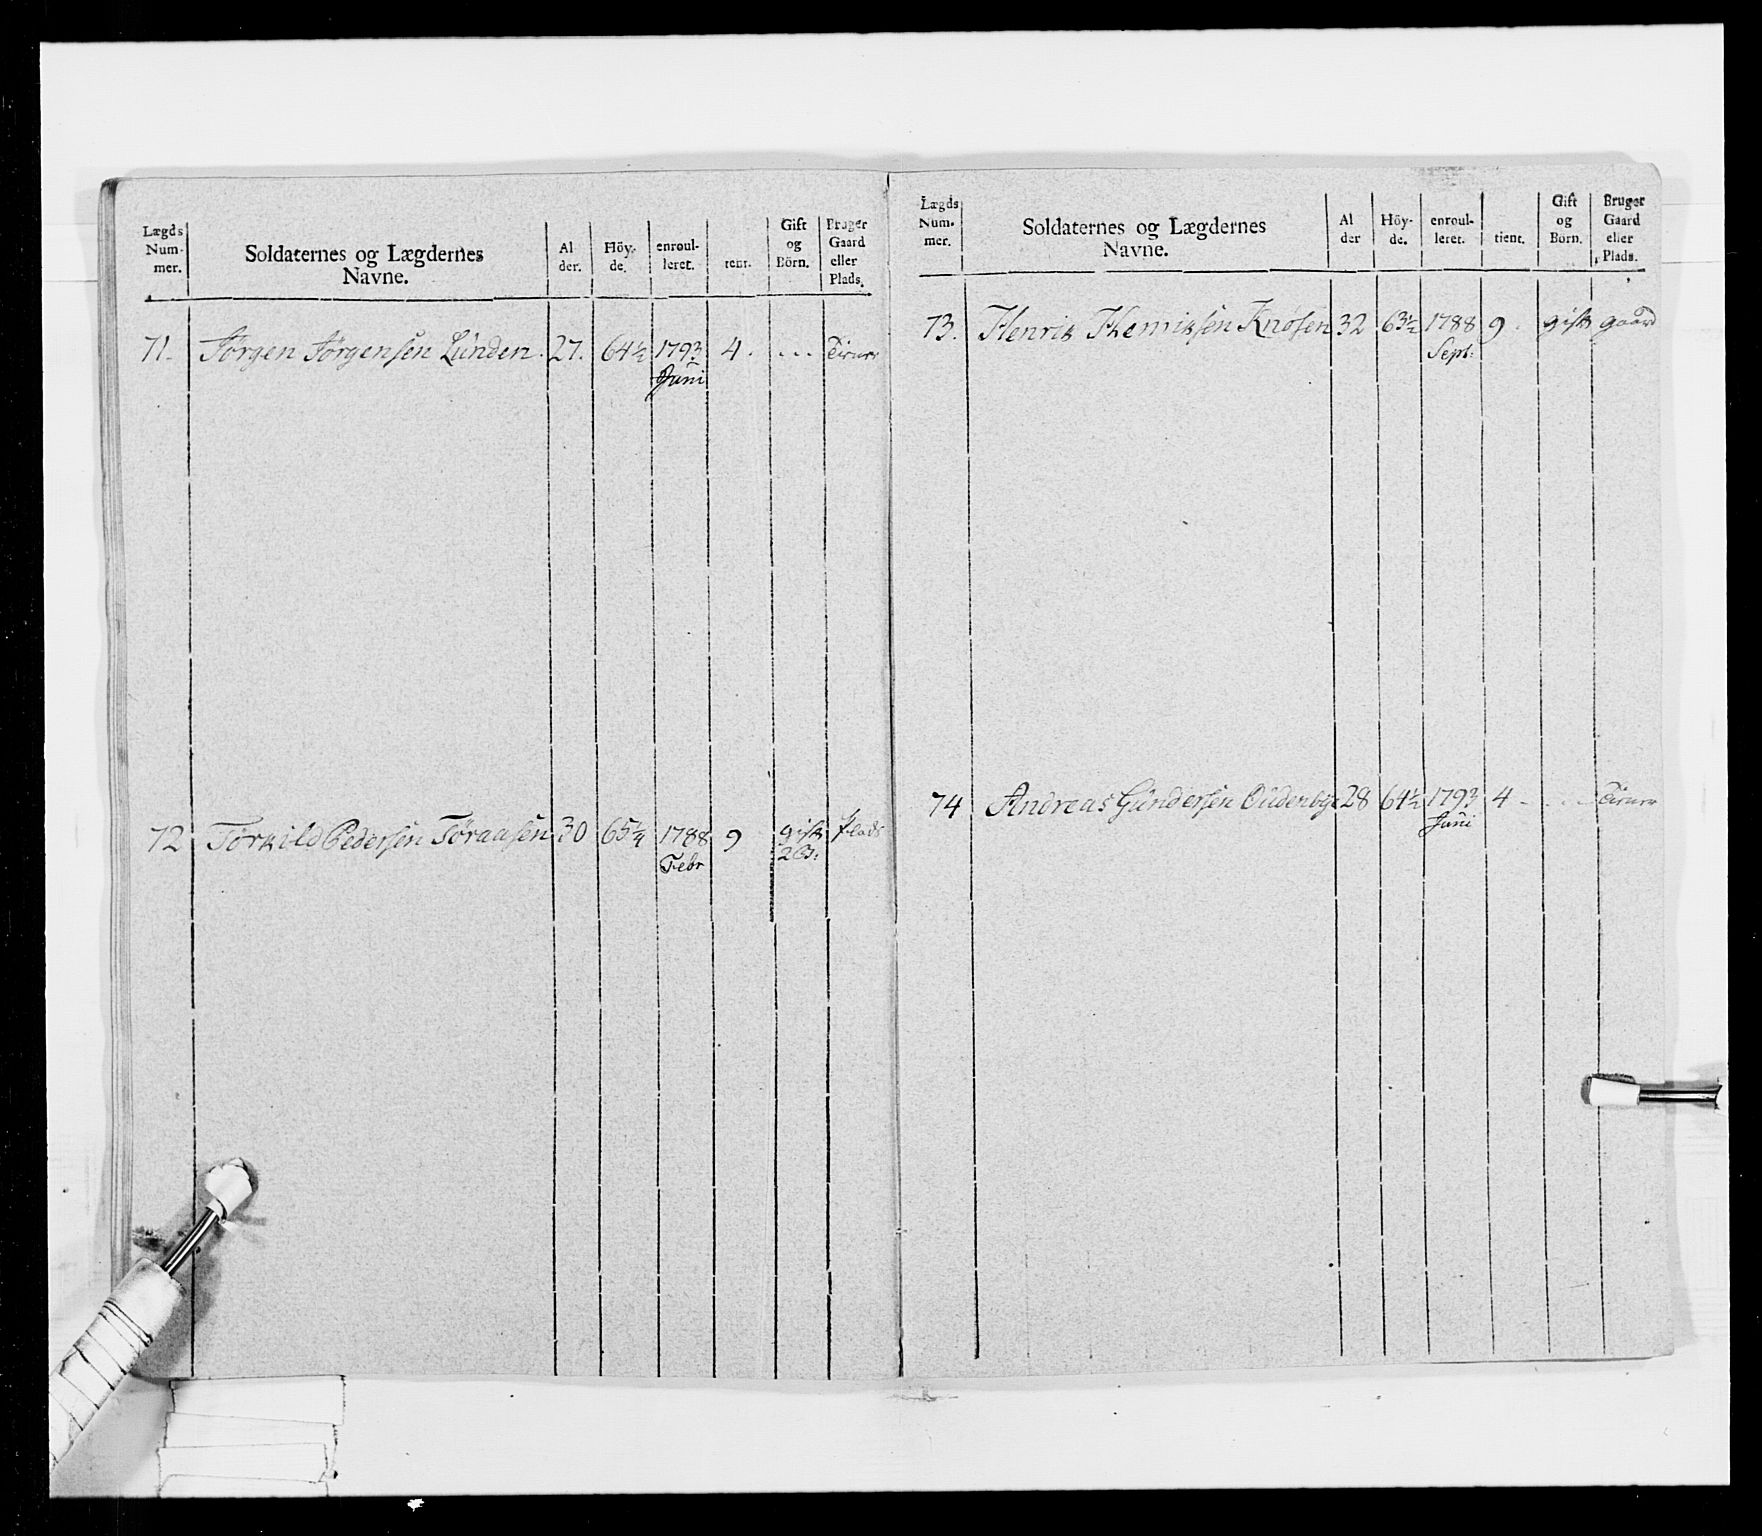 Lægds Num- mer. Soldaternes og Lægdernes Navne. Al der. Höy- de. enroul- leret. tient. Gift og Börn. Bruger Gaard eller Plads.
71. Jørgen Jørgensen Lunden. 27. 64½ 1793 4. ... Tiener
Juni
72 Torkild Pedersen Toraasen 30 65¼ 1788 9 gift Plads
Febr 2 B:
Lægds Num- mer. Soldaternes og Lægdernes Navne. Al der Höy- de. enroul- leret. tient. Gift og Börn. Bruger Gaard eller Plads.
73. Henrik Henriksen Knosen 32 63½ 1788 9. gift gaard
Sept:
74 Andreas Gundersen 28 64½ 1793 4 - . . - Tiener
Juni